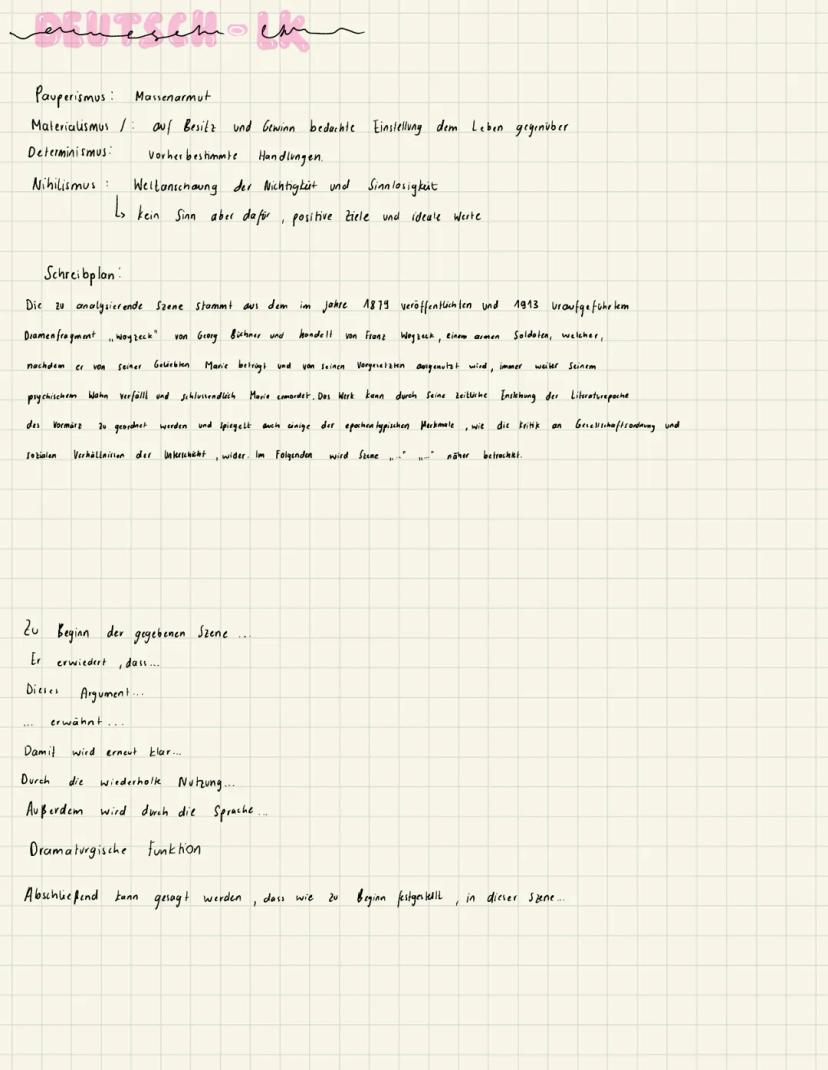 DEUTSCH-LK
Pauperismus: Massenarmut
Materialismus /: auf Besitz und Gewinn bedachte Einstellung dem Leben gegenüber
Determinismus: Vorherbestimmte Handlungen.
Nihilismus: Weltanschaung der Nichtigkeit und Sinnlosigkeit
↳ kein Sinn aber dafür, positive Ziele und ideale Werte
Schreibplan:
Die zu analysierende Szene stammt aus dem im Jahre 1879 veröffentlichten und 1913 uraufgeführtem
Dramenfragment „Woyzeck" von Georg Büchner und handelt von Franz Woyzeck, einem armen Soldaten, welcher,
nachdem er von seiner Geliebten Marie betrogt und von seinen Vorgesetzten ausgenutzt wird, immer weiter seinem
psychischem Wahn verfällt und schlussendlich Marie ermordet. Das Werk kann durch seine zeitliche Enstehung der Literaturepoche
des Vormärz zu geordnet werden und spiegelt auch einige der epochentypischen Merkmale, wie die Kritik an Gesellschaftsordnung und
sozialen Verhältnissen der Unterschicht, wider. Im Folgenden wird Szene „..." „..." näher betrachtet.
Zu Beginn der gegebenen Szene ...
Er erwiedert, dass...
Dieses Argument...
... erwähnt ...
Damit wird erneut klar...
Durch die wiederholte Nutzung...
Außerdem wird durch die Sprache...
Dramaturgische Funktion
Abschließend kann gesagt werden, dass wie zu Beginn festgestellt, in dieser Szene...